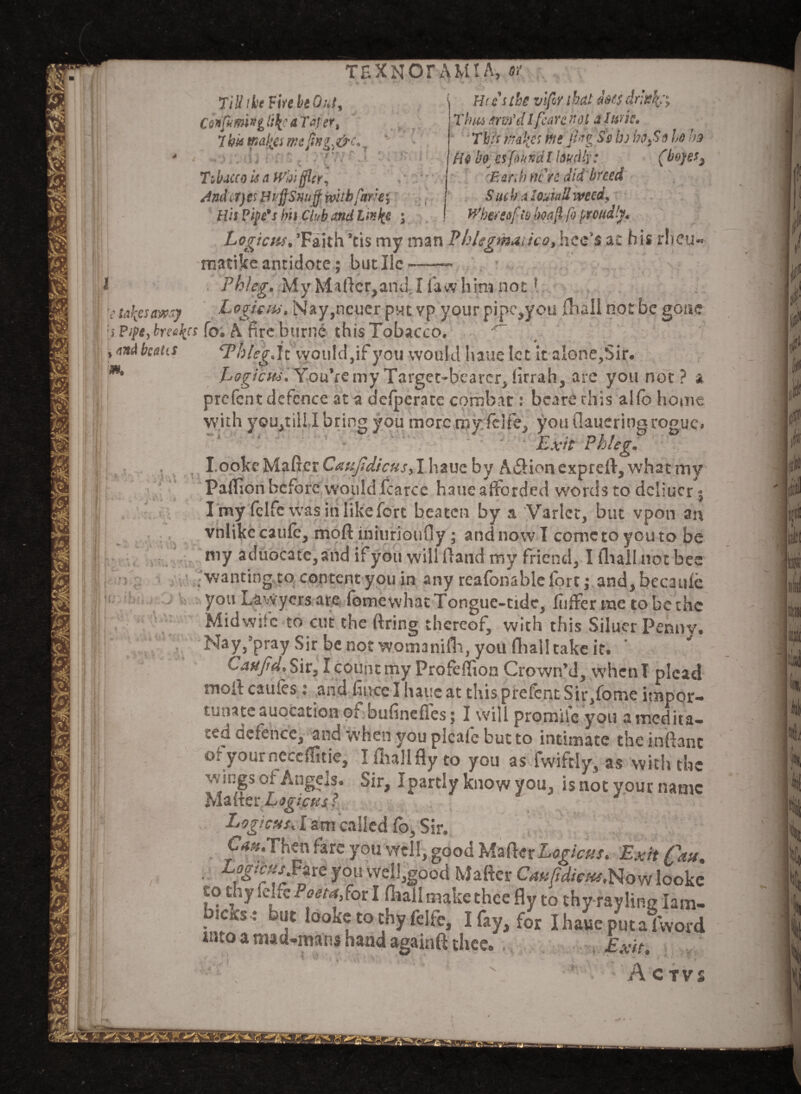 ΤΕΧΝΟΓΑΜΙΑ, or
Till the Fire be Out,
Consuming like a Taper,
This makes me sing, &c.
Tobacco is a Whiffler,
And cryes Huff Snuff with furie;
His Pipe's his Club and Linke ;
Hee's the visor that does drinke;
Thus arm'd I feare not a Iurie.
This makes me sing So ho ho, So ho ho
Ho bo
es found I loudly: (boyes,
Earth ne're did breed
Such a Iouiall weed,
Whereof to boast so proudly.
Logicus. 'Faith 'tis my man Phlegmatico, hee's at his rheu-
matike antidote ; but Ile ——
Phleg. My Master, and I saw him not !
Logicus. Nay, neuer put vp your pipe, you shall not be gone
so. A fire burne this Tobacco.
e takes away
s Pipe, breakes
, and beates
m.
Phleg. It would, if you would haue let it alone, Sir.
Logicus. You're my Target-bearer, sirrah, are you not ? a
present defence at a desperate combat : beare this also home
with you, till I bring you more my selfe, you slauering rogue.
Exit Phleg.
Looke Master Causidicus, I haue by Action exprest, what my
Passion before would scarce haue afforded words to deliuer ;
I my selfe was in like sort beaten by a Varlet, but vpon an
vnlike cause, most iniuriously ; and now I come to you to be
my aduocate, and if you will stand my friend, I shall not bee
wanting to content you in any reasonable sort ; and, because
you Lawyers are somewhat Tongue-tide, suffer me to be the
Midwife to cut the string thereof, with this Siluer Penny.
Nay, 'pray Sir be not womanish, you shall take it.
Causid. Sir, I count my Profession Crown'd, when I plead
most causes : and since I haue at this present Sir, some impor-
tunate auocation of businesses ; I will promise you a medita-
ted defence, and when you please but to intimate the instant
of your necessitie, I shall fly to you as swiftly, as with the
wings of Angels. Sir, I partly know you, is not your name
Master Logicus ?
Logicus. I am called so, Sir.
Cau. Then fare you well, good Master Logicus. Exit Cau.
Logicus. Fare you well, good Master Causidicus. Now looke
to thy selfe Poeta, for I shall make thee fly to thy rayling Iam-
bicks : but looke to thy selfe, I say, for I haue put a sword
into a mad-mans hand against thee. Exit.
ACTVS